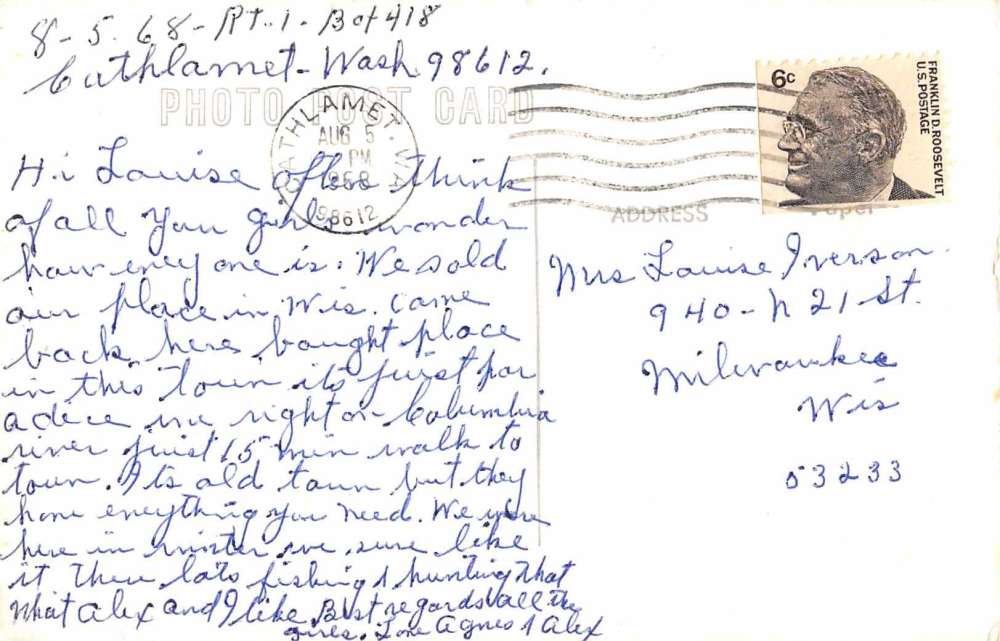 8-5-68-Rt-1-Box 418
Cathlamet-Wash 98612.
PHOTO POST CARD
CATHLAMET. WA
AUG 5
PM
1968
98612
6c
FRANKLIN D. ROOSEVELT
U.S. POSTAGE
ADDRESS
Hi Louise often think
of all you girls wonder
how every one is. We sold
our place in Wis. came
back here bought place
in this town its just par
adice we right on Columbia
river just 15 min walk to
town. Its old town but they
have everything you need. We were
here in winter we sure like
it then lots fishing & hunting that
what Alex and I like. Best regards all the
girls. Love Agnes & Alex
Mrs Louise Iverson.
940-N 21 St.
Milwaukee
Wis
53233